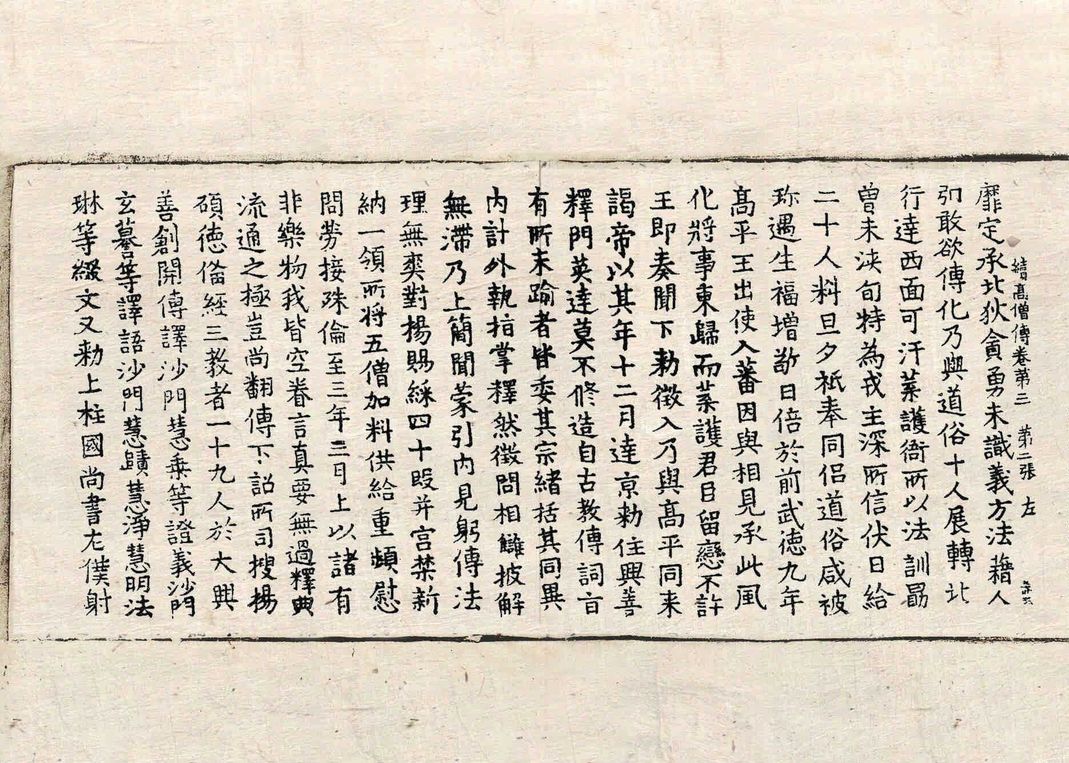 續髙僧傳卷第三　第二張　左
靡定承北狄貪勇未識義方法藉人
弘敢欲傳化乃與道俗十人展轉北
行達西面可汗葉護衙所以法訓勗
曾未浹旬特為戎主深所信伏日給
二十人料旦夕祇奉同侣道俗咸被
珎遇生福增敬日倍於前武德九年
髙平王出使入蕃因與相見承此風
化將事東歸而葉護君臣留戀不許
王即奏聞下勅徵入乃與髙平同来
謁帝以其年十二月達京勅住興善
釋門英達莫不修造自古教傳詞旨
有所未踰者皆委其宗緒括其同異
内計外執指掌釋然徵問相讎披解
無滯乃上簡聞蒙引内見躬傳法
理無爽對揚賜綵四十段并宫禁新
納一領所將五僧加料供給重頻慰
問勞接殊倫至三年三月上以諸有
非樂物我皆空眷言真要無過釋典
流通之極豈尚翻傳下詔所司搜楊
碩德俻經三教者一十九人於大興
善創開傳譯沙門慧乗等證義沙門
玄謩等譯語沙門慧賾慧淨慧明法
琳等綴文又勅上柱國尚書左僕射